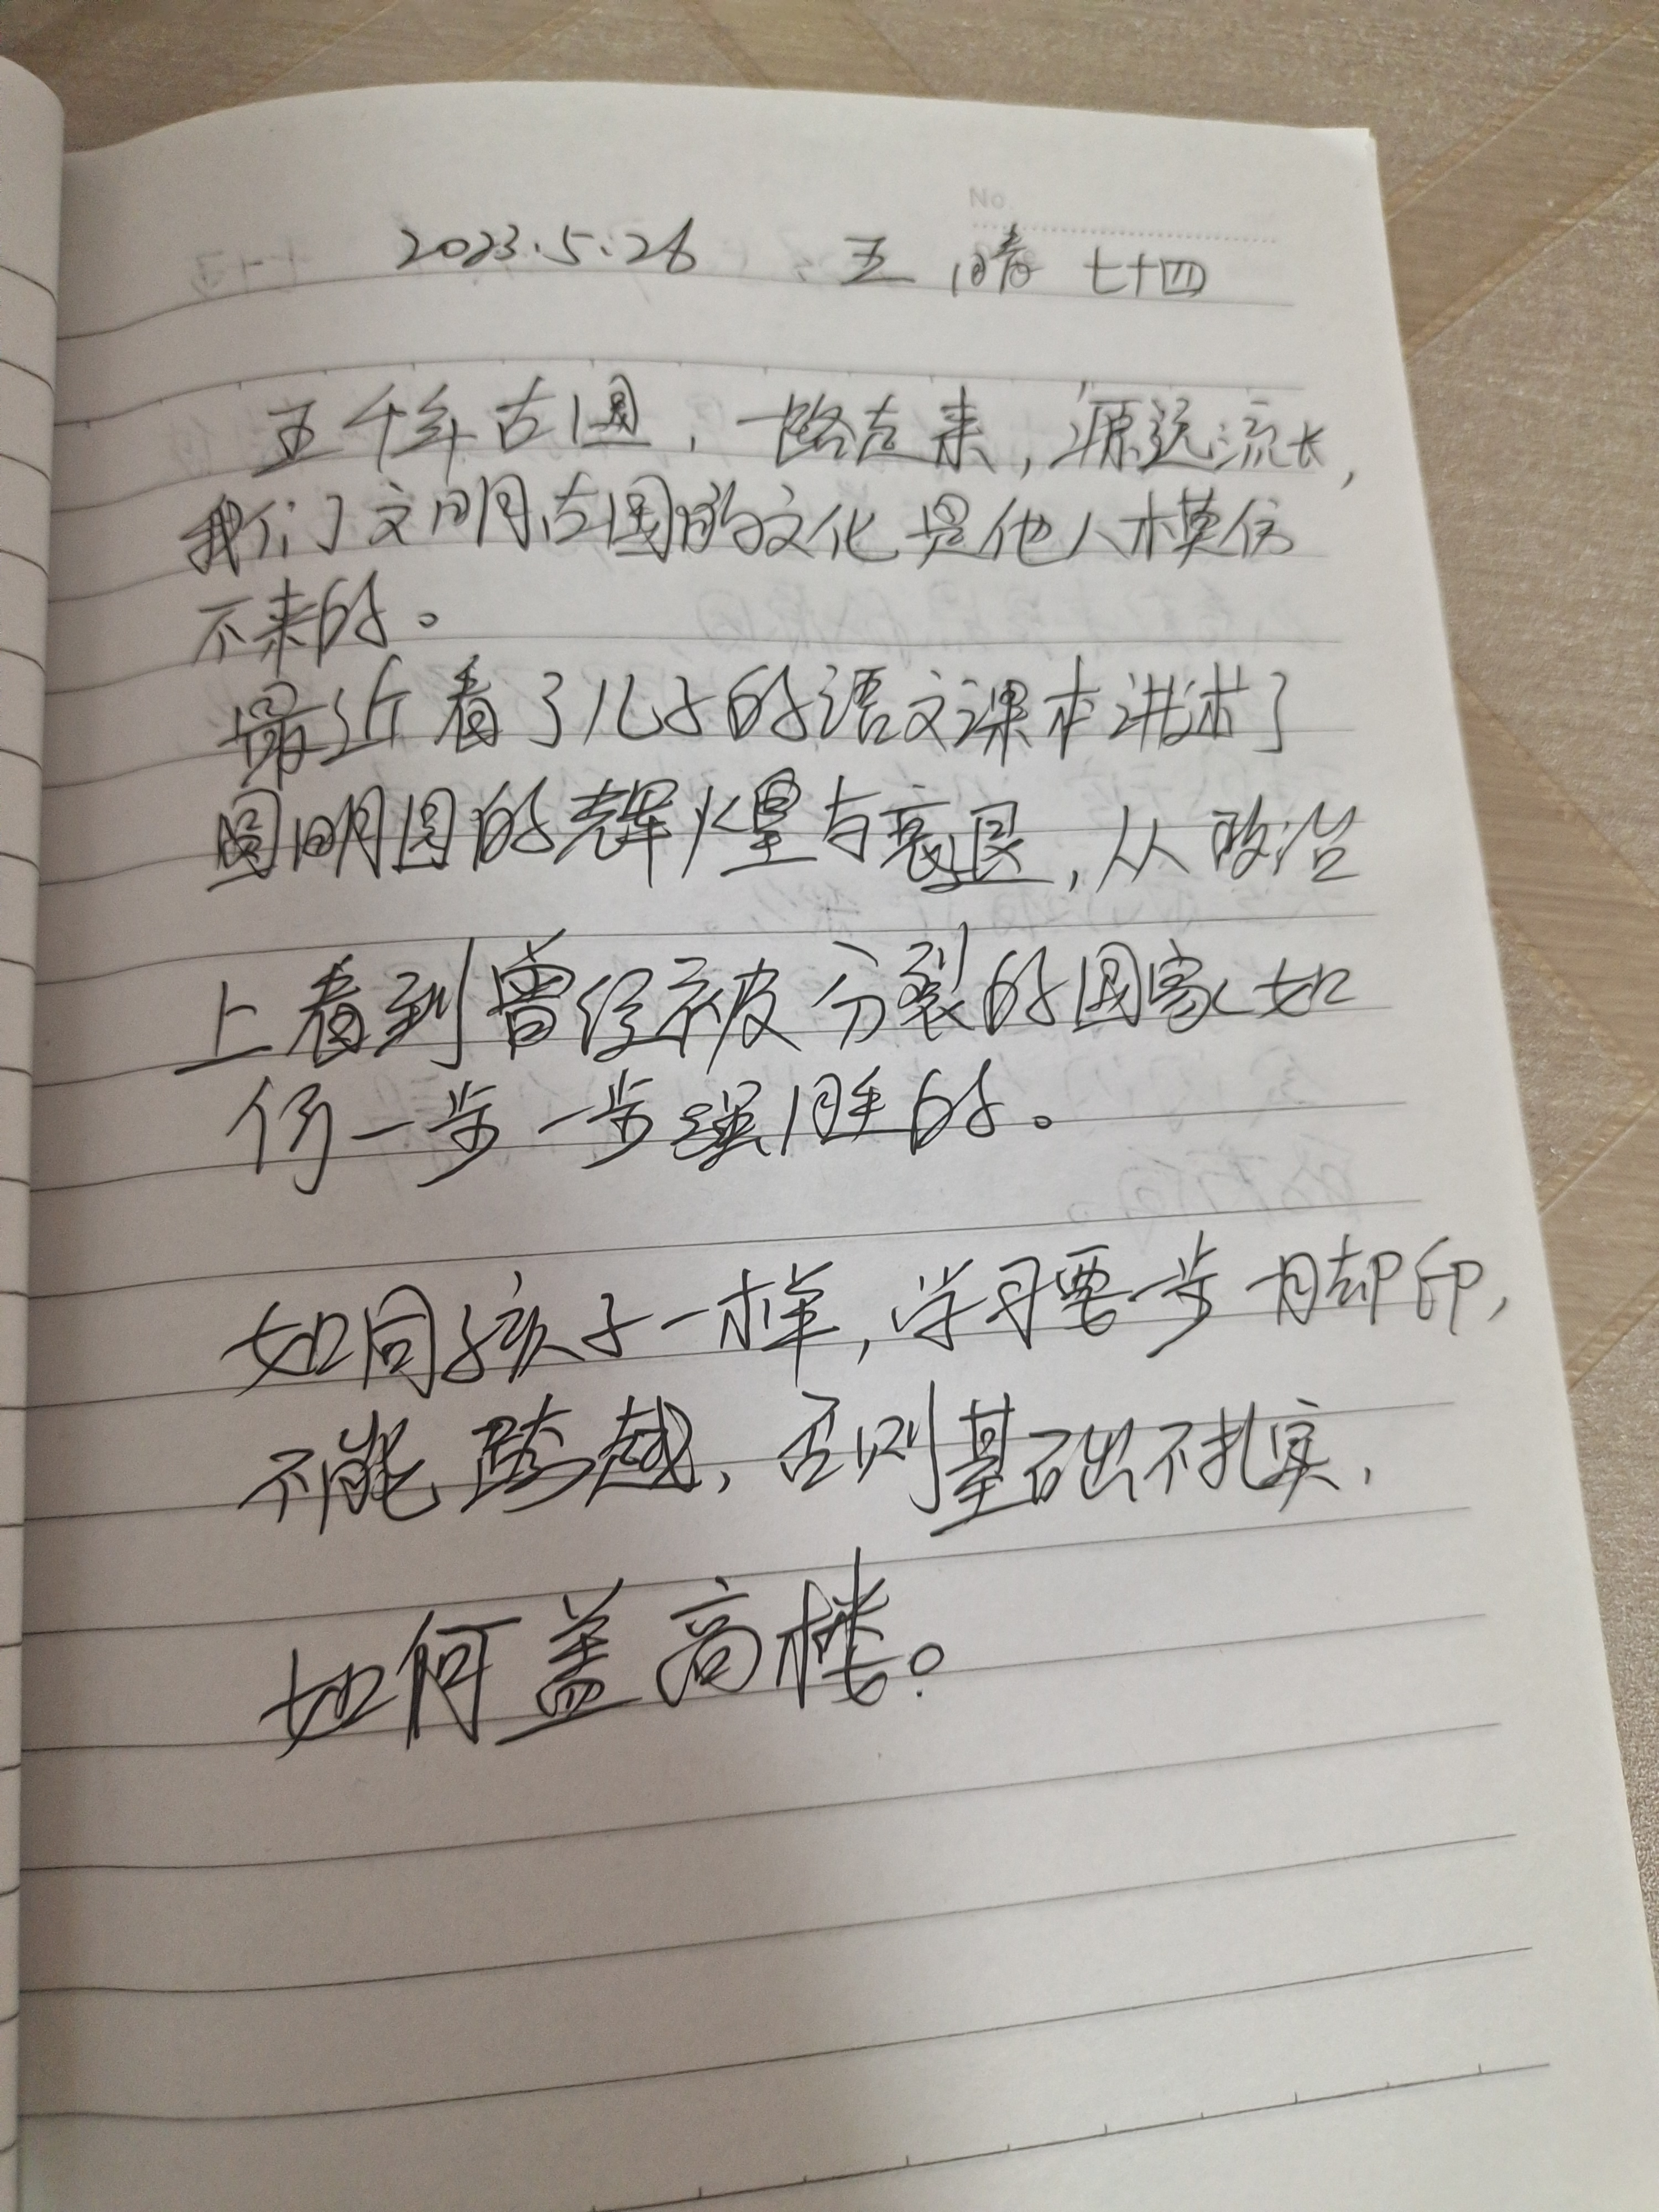 No.
2023.5.26 五 晴 七十四
五千年古国，一路走来，源远流长，
我们文明古国的文化是他人模仿
不来的。
最近看了儿子的语文课本讲述了
圆明园的辉煌与衰退，从政治
上看到曾经被分裂的国家如
何一步一步强胜的。
如同孩子一样，学习要一步一脚印，
不能跨越，否则基础不扎实，
如何盖高楼。